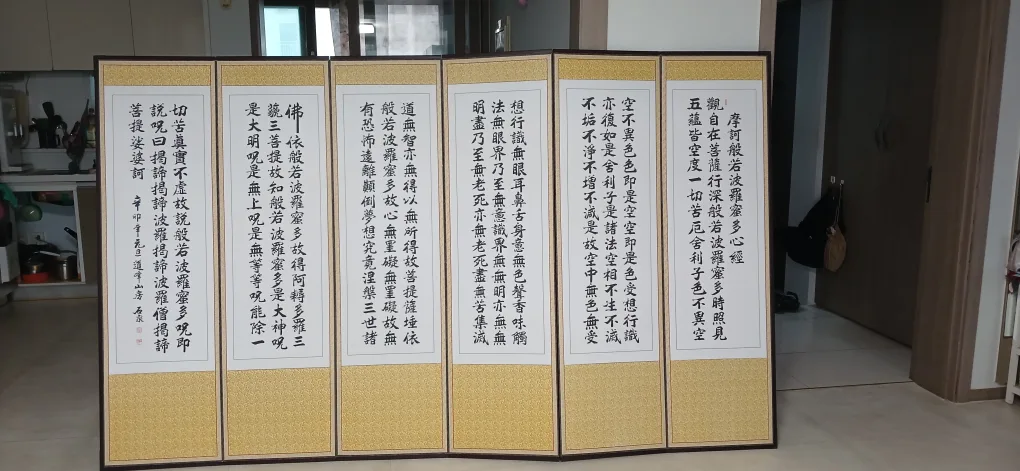 摩訶般若波羅蜜多心經
觀自在菩薩行深般若波羅蜜多時照見
五蘊皆空度一切苦厄舍利子色不異空
空不異色色即是空空即是色受想行識
亦復如是舍利子是諸法空相不生不滅
不垢不淨不增不減是故空中無色無受
想行識無眼耳鼻舌身意無色聲香味觸
法無眼界乃至無意識界無無明亦無無
明盡乃至無老死亦無老死盡無苦集滅
道無智亦無得以無所得故菩提薩埵依
般若波羅蜜多故心無罣礙無罣礙故無
有恐怖遠離顚倒夢想究竟涅槃三世諸
佛依般若波羅蜜多故得阿耨多羅三
藐三菩提故知般若波羅蜜多是大神呪
是大明呪是無上呪是無等等呪能除一
切苦眞實不虛故說般若波羅蜜多呪即
說呪曰揭諦揭諦波羅揭諦波羅僧揭諦
菩提娑婆訶
辛卯年元旦 道峰山房